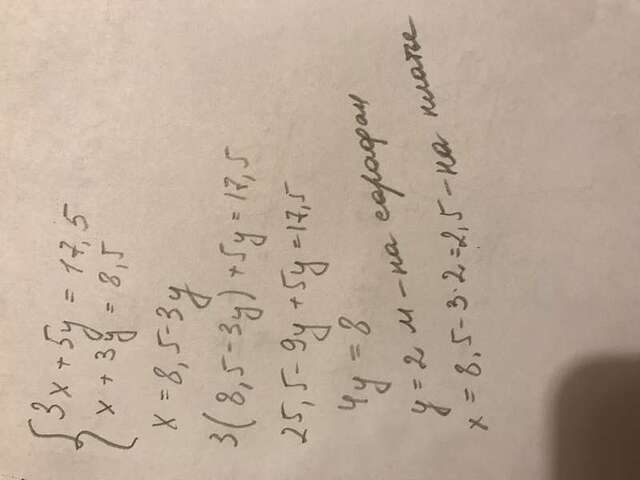 3x + 5y = 17,5
x + 3y = 8,5
x = 8,5 - 3y
3(8,5 - 3y) + 5y = 17,5
25,5 - 9y + 5y = 17,5
4y = 8
y = 2 м - на сарафан
x = 8,5 - 3·2 = 2,5 - на платье